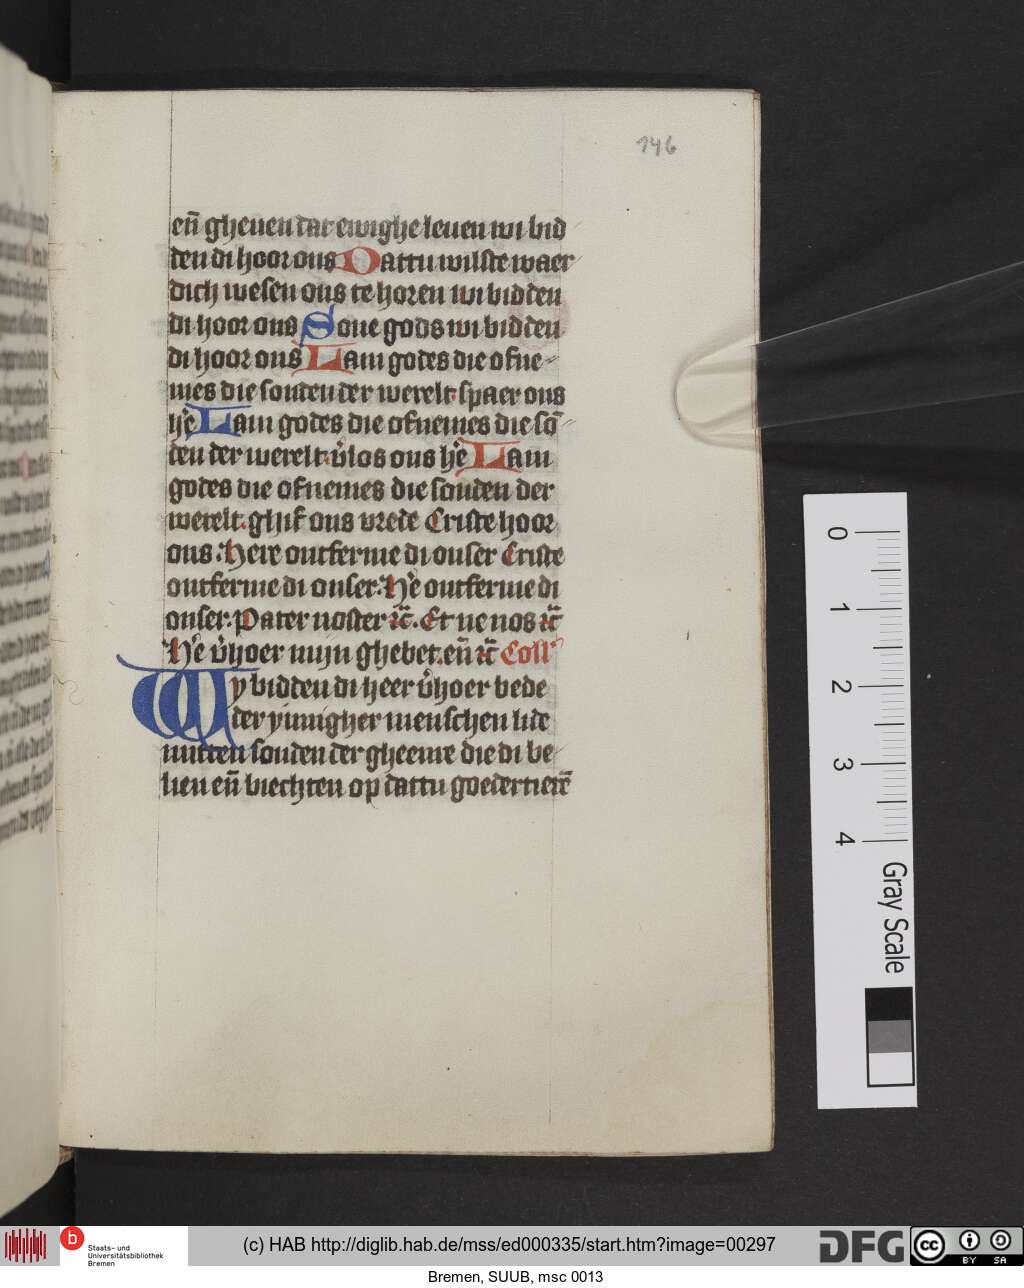 146
en̄ gheuen dat ewighe leuen wi bid
den di hoor ons Dattu wilste waer
dich wesen ons te horen wi bidden
di hoor ons Sone gods wi bidden
di hoor ons Lam godes die ofne
mes die sonden der werelt spaer ons
he Lam godes die ofnemes die so̅
den der werelt v̓los ons he Lam
godes die ofnemes die sonden der
werelt. ghif ons vrede Criste hoor
ons. Here ontferme di onser Criste
ontferme di onser. He ontferme di
onser. Pater noster ⁊c̄. Et ne nos ⁊c̄
He v̓hoer mijn ghebet. en̄ ⁊c̄ Coll'
Wy bidden di heer v̓hoer bede
der ynnigher menschen lide
mitten sonden der gheenre die di be
lien en̄ biechten op dattu goedertiere̅
0
1
2
3
4
Gray Scale
b Staats- und
Universitätsbibliothek
Bremen
(c) HAB http://diglib.hab.de/mss/ed000335/start.htm?image=00297
DFG
cc BY SA
Bremen, SUUB, msc 0013